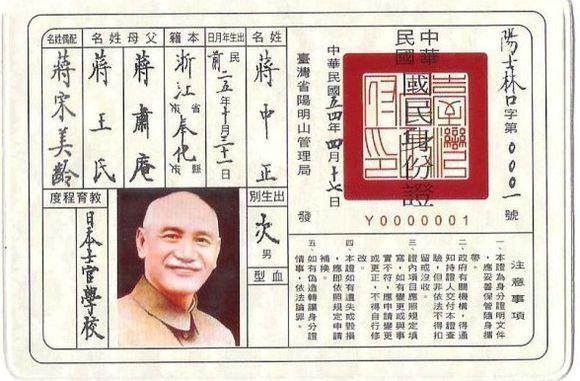 陽士林口字第0001號
中華
民國
國民身份證
Y0000001
中華民國五四年四月十七日
臺灣省陽明山管理局 發
姓名
蔣中正
出生年月日
民前二五年十月三十一日
本籍
浙江省市奉化縣市
父母姓名
蔣肅庵
蔣王氏
配偶姓名
蔣宋美齡
出生別
次男
血型
教育程度
日本士官學校
注意事項
一、本證為身分證明文件
應妥善保管隨身攜
帶。
二、政府有關機構，得通
知持證人交付本證查
驗，但非依法不得扣
留或沒收。
三、證內項目應照規定填
寫，如有變更或與事
實不符，應申請變更
或更正，不得自行修
改。
四、本證如有遺失或毀損
應即依照規定申請
補換。
五、如有偽造轉讓身分證
情事，依法論罪。